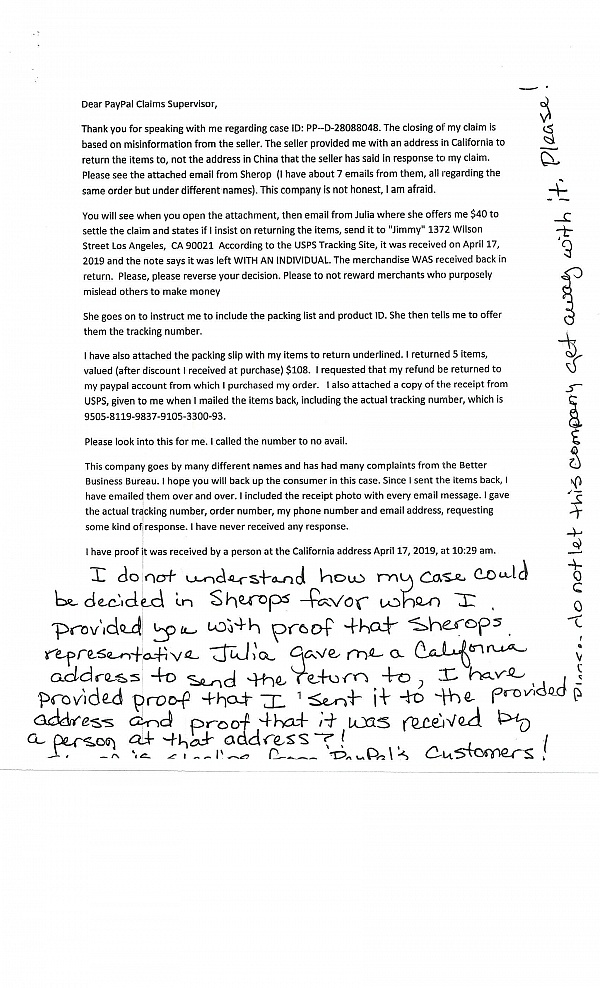 Dear PayPal Claims Supervisor,
Thank you for speaking with me regarding case ID: PP--D-28088048. The closing of my claim is
based on misinformation from the seller. The seller provided me with an address in California to
return the items to, not the address in China that the seller has said in response to my claim.
Please see the attached email from Sherop (I have about 7 emails from them, all regarding the
same order but under different names). This company is not honest, I am afraid.
You will see when you open the attachment, then email from Julia where she offers me $40 to
settle the claim and states if I insist on returning the items, send it to "Jimmy" 1372 WIlson
Street Los Angeles, CA 90021 According to the USPS Tracking Site, it was received on April 17,
2019 and the note says it was left WITH AN INDIVIDUAL. The merchandise WAS received back in
return. Please, please reverse your decision. Please to not reward merchants who purposely
mislead others to make money
She goes on to instruct me to include the packing list and product ID. She then tells me to offer
them the tracking number.
I have also attached the packing slip with my items to return underlined. I returned 5 items,
valued (after discount I received at purchase) $108. I requested that my refund be returned to
my paypal account from which I purchased my order. I also attached a copy of the receipt from
USPS, given to me when I mailed the items back, including the actual tracking number, which is
9505-8119-9837-9105-3300-93.
Please look into this for me. I called the number to no avail.
This company goes by many different names and has had many complaints from the Better
Business Bureau. I hope you will back up the consumer in this case. Since I sent the items back, I
have emailed them over and over. I included the receipt photo with every email message. I gave
the actual tracking number, order number, my phone number and email address, requesting
some kind of response. I have never received any response.
I have proof it was received by a person at the California address April 17, 2019, at 10:29 am.
I do not understand how my case could
be decided in Sherops favor when I
provided you with proof that Sherops
representative Julia gave me a California
address to send the return to, I have
provided proof that I sent it to the provided
address and proof that it was received by
a person at that address?!
is stealing from PayPal's Customers!
do not let this company get away with it. Please!